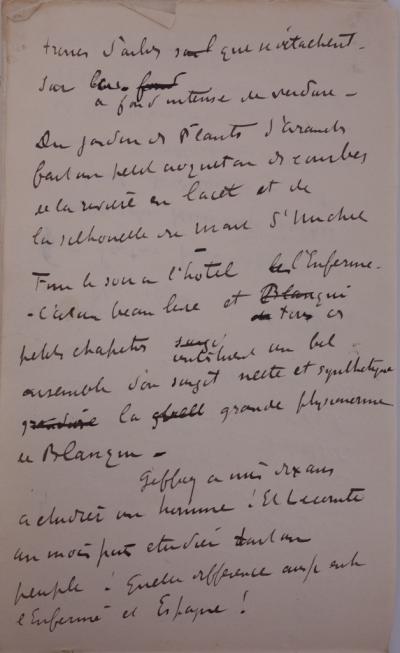 troncs d'arbres sur l que se détachent
sur leur fond
a fond intense de verdure —
Du jardin des Plants d'Avranch
fait un petit croqueton des courbes
de la rivière en lacet et de
la silhouette du Mont St Michel
Fini le soir à l'hôtel le l'Enfermé.
- C'est un beau livre et Blanqui
de tous ces
petits chapitres surgi
un bel
ensemble d'un sujet nette et synthétique
grandeur la grande physionomie
de Blanqui —
Geffroy a mis dix ans
a étudier un homme ! Et Lecomte
un mois pour étudier tout un
peuple ! Quelle différence aussi entre
l'Enfermé et Espagne !